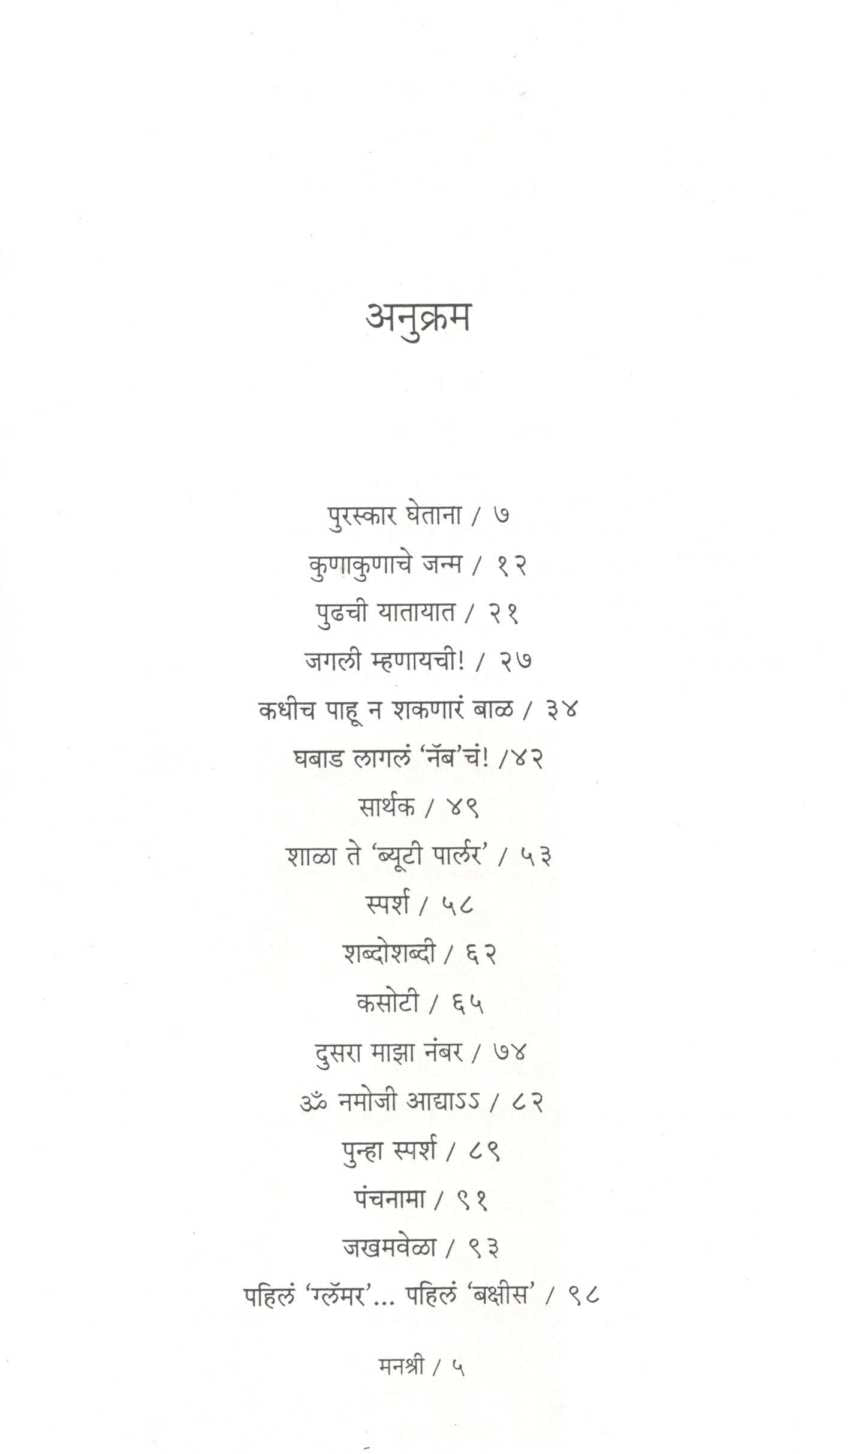 अनुक्रम
पुरस्कार घेताना / ७
कुणाकुणाचे जन्म / १२
पुढची यातायात / २१
जगली म्हणायची! / २७
कधीच पाहू न शकणारं बाळ / ३४
घबाड लागलं ‘नॅब’चं! /४२
सार्थक / ४९
शाळा ते ‘ब्यूटी पार्लर’ / ५३
स्पर्श / ५८
शब्दोशब्दी / ६२
कसोटी / ६५
दुसरा माझा नंबर / ७४
ॐ नमोजी आद्याऽऽ / ८२
पुन्हा स्पर्श / ८९
पंचनामा / ९१
जखमवेळा / ९३
पहिलं ‘ग्लॅमर’... पहिलं ‘बक्षीस’ / ९८
मनश्री / ५